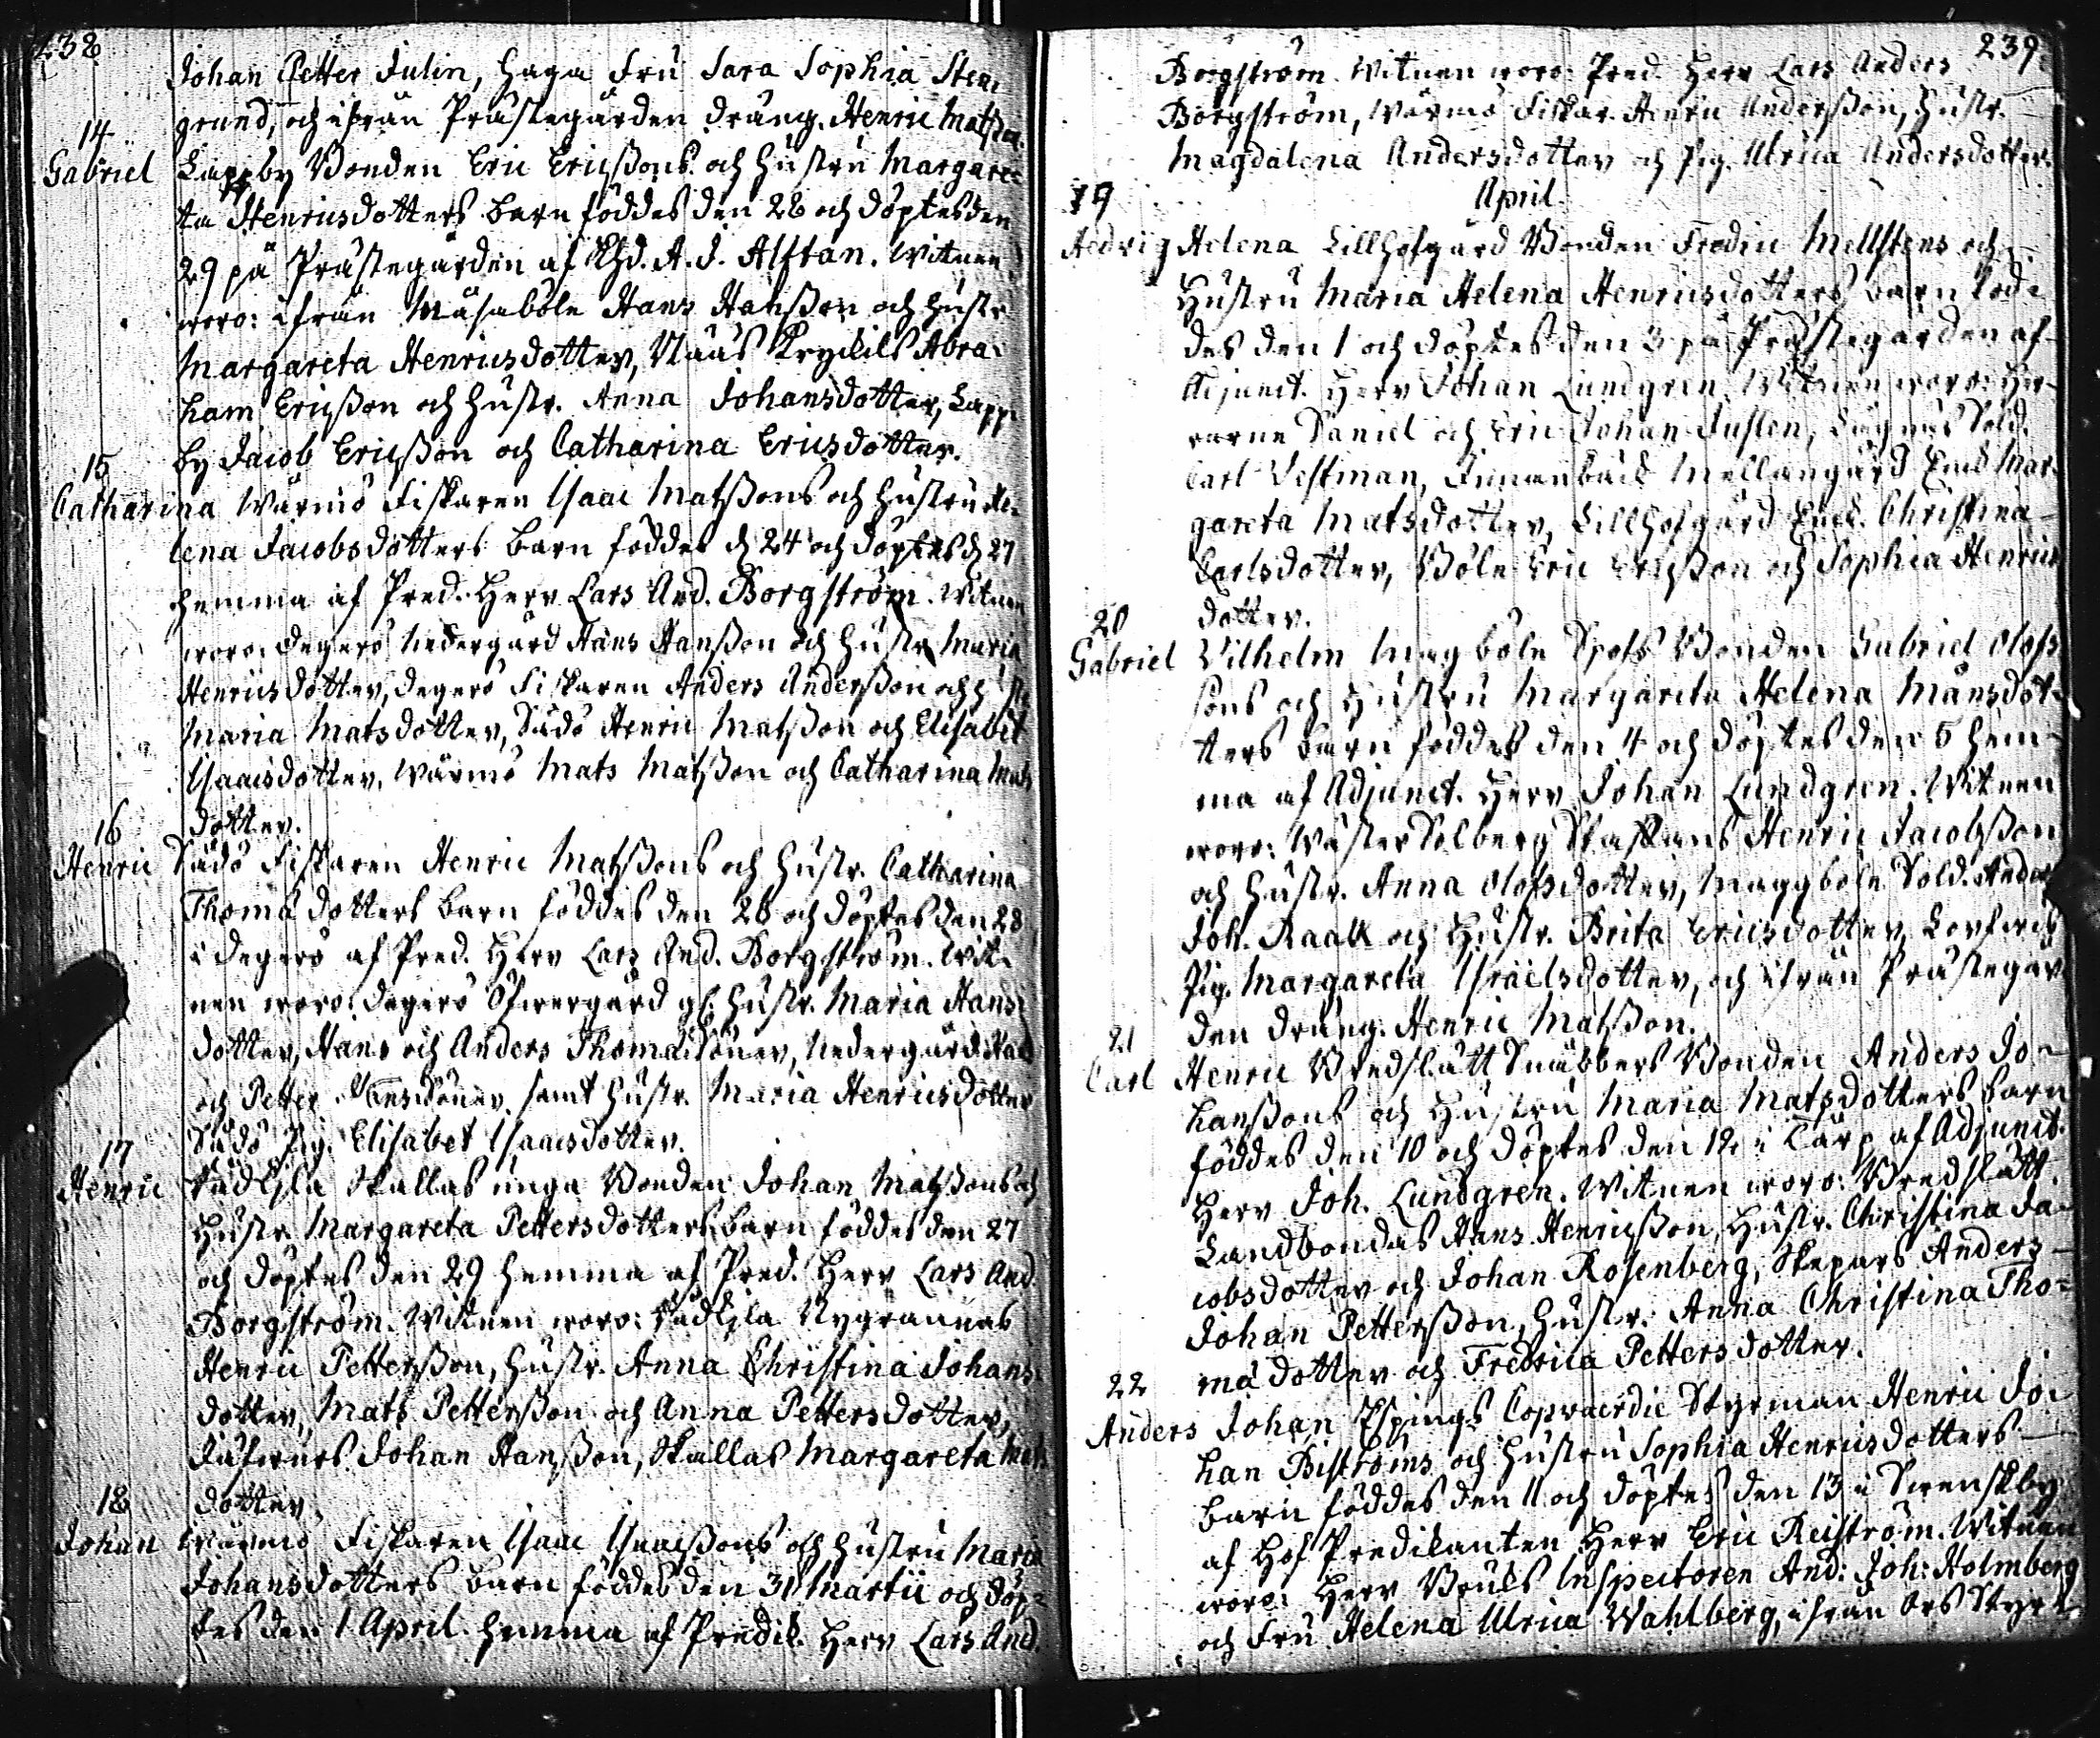 238
Johan Petter Julin, Haga Fru Sara Sophia Sten-
grund, och ifrån Prästegården dräng. Henric Matsson.
14
Gabriel Lappby Bonden Eric Ericssons och hustru Margare-
ta Henricsdotters barn föddes den 28 och döptes den
29 på Prästegården af A. J. Alftan. Witnen
woro: ifrån Måsaböle Hans Hansson och hustr.
Margareta Henricsdotter, Näås Abra-
ham Ericsson och hustr. Anna Johansdotter, Lapp-
by Jacob Ericsson och Catharina Ericsdotter.
15
Catharina Wärnö Fiskaren Isaac Matssons och hustru He-
lena Jacobsdotters barn föddes d 24 och döptes d 27
hemma af Pred. Herr Lars And. Borgström. Witnen
woro: Degerö Nedergård Hans Hansson och hustr Maria
Henricsdotter, Degerö Fiskaren Anders Andersson och hustr
Maria Matsdotter, Sådö Henric Matsson och Elisabet
Isaacsdotter, Wärnö Mats Matsson och Catharina Mats
dotter.
16
Henric Sådö Fiskaren Henric Matssons och hustr. Catharina
Thomædotters barn föddes den 26 och döptes den 28
i Degerö af Pred. Herr Lars And. Borgström. Wit-
nen woro: Degerö Öfwergård hustr. Maria Hans
dotter, Hans och Anders Thomæsöner, Nedergård
och Petter Hanssöner samt hustr. Maria Henricsdotter
Sådö Pig. Elisabet Isaacsdotter.
17
Henric Skallas unga Bonden Johan Matssons och
hustr. Margareta Pettersdotters barn föddes den 27
och döptes den 29 hemma af Pred. Herr Lars And.
Borgström. Witnen woro: Nygrannas
Henric Pettersson, hustr. Anna Christina Johans-
dotter, Mats Pettersson och Anna Pettersdotter,
Johan Hansson, Skallas Margareta Mats
dotter.
18
Johan Wärnö Fiskaren Isaac Isaacssons och hustru Maria
Johansdotters barn föddes den 31 Martii och döp-
tes den 1 April hemma af Predik. Herr Lars And.
239
Borgström. Witnen woro: Pred. Herr Lars Anders
Borgström, Wärnö Fiskar. Henric Andersson, hustr.
Magdalena Andersdotter och Pig. Ulrica Andersdotter.
April.
19
Hedvig Helena Lillhofgård Bonden Fredric Mellstens och
Hustru Maria Helena Henricsdotters barn föd-
des den 1 och döptes den 3 på Prästegården af
Adjunct. Herr Johan Lundgren. Witnen woro: Her-
rarne Daniel och Eric Johan Juslen, Sold.
Carl Vestman, Finnanback Mellangård Mar-
gareta Matsdotter, Lillhofgård Christina
Carlsdotter, Böle Eric Ericsson och Sophia Henrics
dotter.
20
Gabriel Vilhelm Magböle Spofs Bonden Gabriel Olofs
sons och Hustru Margareta Helena Månsdot-
ters barn föddes den 4 och döptes den 5 hem-
ma af Adjunct. Herr Johan Lundgren. Witnen
woro: Wäster Solberg Staffans Henric Jacobsson
och hustr. Anna Olofsdotter, Maggböle Sold. Anders
Joh. Raask och Hustr. Brita Ericsdotter,
Pig. Margareta Israelsdotter, och ifrån Prästegår
den dräng. Henric Matsson.
21
Carl Henric Bredslätt Snäbbers Bonden Anders Jo-
hanssons och Hustru Maria Matsdotters barn
föddes den 10 och döptes den 12 i Tårp af Adjunct.
Herr Joh. Lundgren. Witnen woro: Bredslätt
Landbondas Hans Henricsson, Hustr. Christina Ja-
cobsdotter och Johan Rosenberg, Skepars Anders
Johan Pettersson, hustr. Anna Christina Tho-
mædotter och Fredrica Pettersdotter.
22
Anders Johan Espings Copvaerdie Styrman Henric Jo-
han Biströms och hustru Sophia Henricsdotters
barn föddes den 11 och döptes den 13 i Svenskby
af Hof Predikanten Herr Eric Reiström. Witnen
woro: Herr Bruks Inspectoren And: Joh: Holmberg
och Fru Helena Ulrica Wahlberg, ifrån